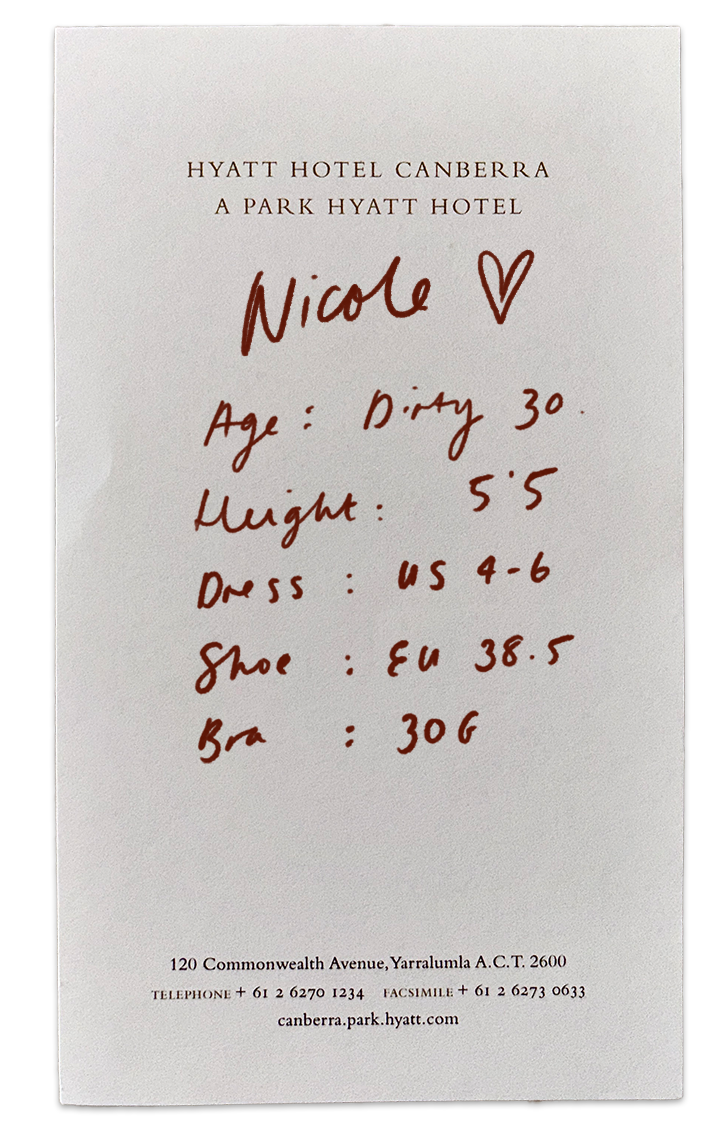 HYATT HOTEL CANBERRA
A PARK HYATT HOTEL
Nicole
Age : Dirty 30.
Height : 5'5
Dress : US 4-6
Shoe : EU 38.5
Bra : 30G
120 Commonwealth Avenue, Yarralumla A.C.T. 2600
TELEPHONE + 61 2 6270 1234 FACSIMILE + 61 2 6273 0633
canberra.park.hyatt.com